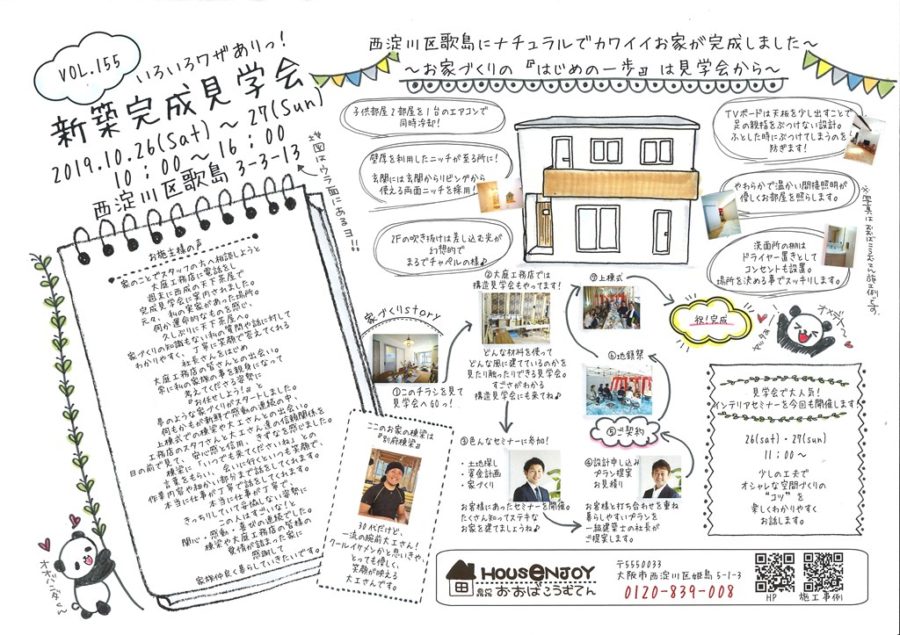 VOL.155
いろいろワザありっ!
新築完成見学会
2019.10.26(Sat)～27(Sun)
10:00～16:00
西淀川区歌島3-3-13
西淀川区歌島にナチュラルでカワイイお家が完成しました～
～お家づくりの『はじめの一歩』は見学会から～
子供部屋2部屋を1台のエアコンで
同時冷却!
壁厚を利用したニッチが至る所に!
玄関には玄関からリビングから
使える両面ニッチを採用!
2Fの吹き抜けは差し込む光が
幻想的で
まるでチャペルの様♪
TVボードは天板を少し出すことで
足の親指をぶつけない設計。
ふとした時にぶつけてしまうのを
防ぎます!
やわらかで温かい間接照明が
優しくお部屋を照らします。
洗面所の棚は
ドライヤー置きとして
コンセントも設置。
場所を決める事でスッキリします。
お施主様の声
家のことでスタッフの方へ相談しようと
大庭工務店に電話をし
週末に西成の天下茶屋で
完成見学会に案内されました。
元々、私の実家があった場所。
何か運命的なものを感じ、
久しぶりに天下茶屋へ。
家づくりの知識もない私の質問や話に対して
わかりやすく、丁寧に笑顔で答えてくれる
社長さんをはじめ
大庭工務店の皆さんとの出会い。
常に私の家族の事を親身になって
考えてくださる姿勢に
『お任せしよう!』と
夢のような家づくりがスタートしました。
何もかもが新鮮で感動の連続の中、
上棟式での棟梁や大工さんとの出会い。
工務店のスタッフさんと大工さん達の信頼関係を
目の前で見て、安心感と信用、きずなを感じました。
棟梁に「いつでも来てくださいね」との
言葉をもらい、会いに行くといつも笑顔で、
作業内容や細かい部分まで話をしてくれます。
本当に仕事が丁寧で
きっちりしていて妥協しない姿勢に
この人はすごいな!と
関心・感動・喜びの連続でした。
棟梁や大庭工務店の皆様の
愛情が詰まった家に
感謝して
家族仲良く暮らしていきたいです。
家づくりstory
①このチラシを見て
見学会へGOっ!
②大庭工務店では
構造見学会もやってます!
どんな材料を使って
どんな風に建てているのかを
見たり触ったりできる見学会。
すごさがわかる
構造見学会にも来てね♪
③色んなセミナーに参加!
・土地探し
・資金計画
・家づくり
お客様にあったセミナーを開催。
たくさん知ってステキな
お家を建てましょうね♪
④設計申し込み
プラン提案
お見積り
お客様と打ち合わせを重ね
暮らしやすいプランを
一級建築士の社長が
ご提案します。
⑤ご契約
⑥地鎮祭
⑦上棟式
祝!完成
ここのお家の棟梁は
30代だけど、
一流の腕前大工さん!
クールイケメンかと思いきや、
とっても優しく、
笑顔が映える
大工さんです。
見学会で大人気!
インテリアセミナーを今回も開催します!
26(sat)・27(sun)
11:00～
少しの工夫で
オシャレな空間づくりの
“コツ”を
楽しくわかりやすく
お話します。
HOUSENJOY
おおばこうむてん
〒5550033
大阪市西淀川区姫島5-1-3
0120-839-008
HP
施工事例